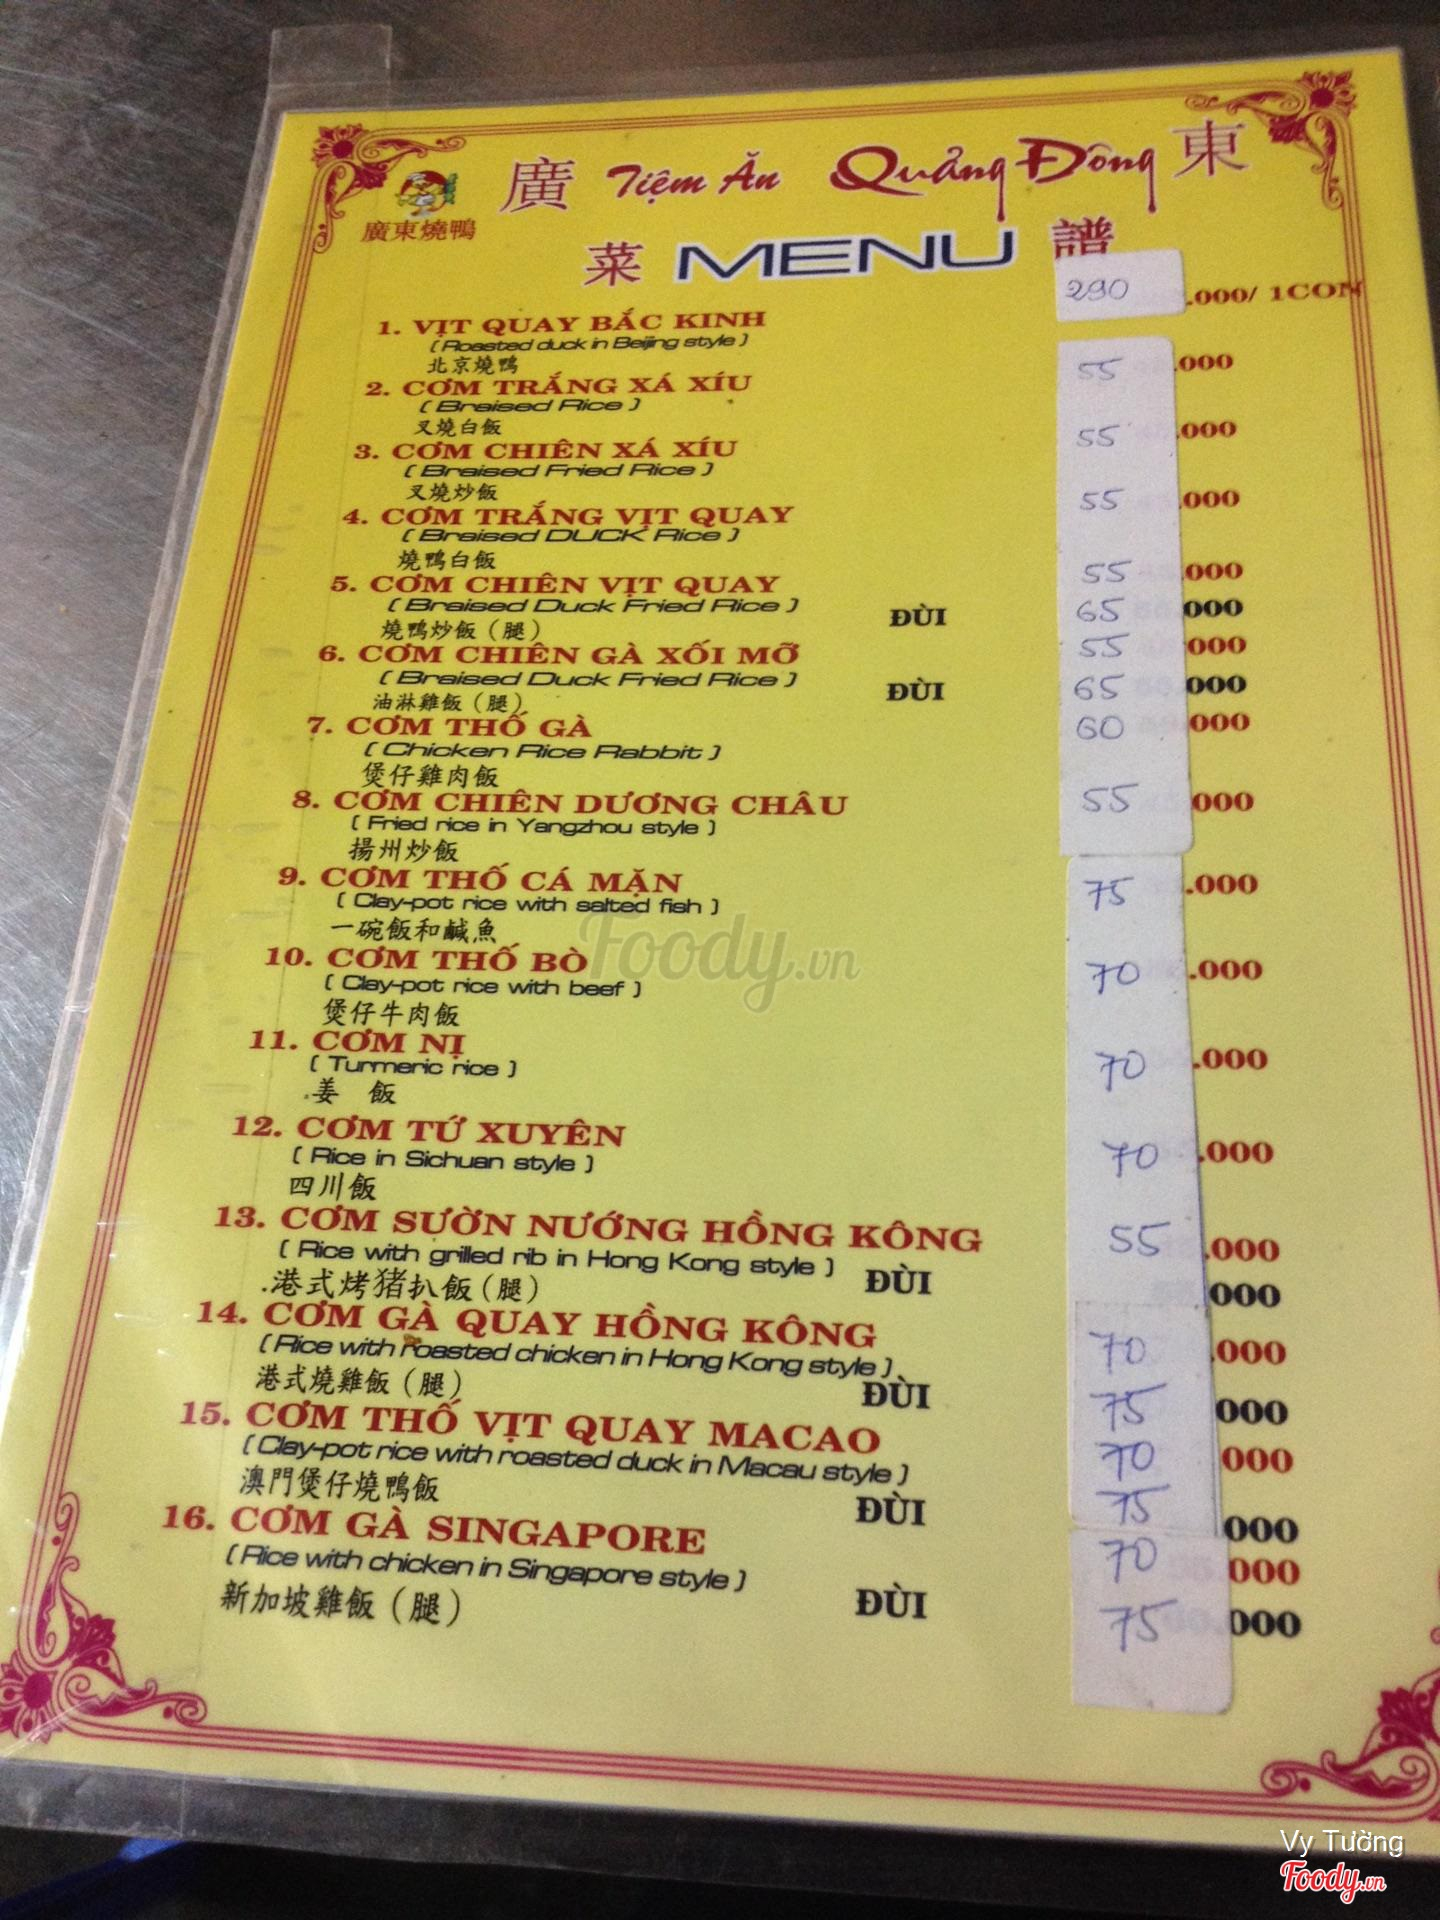 廣 Tiệm Ăn Quảng Đông 東
廣東燒鴨
菜 MENU 譜
1. VỊT QUAY BẮC KINH 290 .000/ 1CON
( Roasted duck in Beijing style )
北京燒鴨
2. CƠM TRẮNG XÁ XÍU 55 .000
( Braised Rice )
叉燒白飯
3. CƠM CHIÊN XÁ XÍU 55 .000
( Braised Fried Rice )
叉燒炒飯
4. CƠM TRẮNG VỊT QUAY 55 .000
( Braised DUCK Rice )
燒鴨白飯
5. CƠM CHIÊN VỊT QUAY 55 .000
( Braised Duck Fried Rice )
燒鴨炒飯 ( 腿 ) ĐÙI 65 .000
6. CƠM CHIÊN GÀ XỐI MỠ 55 .000
( Braised Duck Fried Rice )
油淋雞飯 ( 腿 ) ĐÙI 65 .000
7. CƠM THỐ GÀ 60 .000
( Chicken Rice Rabbit )
煲仔雞肉飯
8. CƠM CHIÊN DƯƠNG CHÂU 55 .000
( Fried rice in Yangzhou style )
揚州炒飯
9. CƠM THỐ CÁ MẶN 75 .000
( Clay-pot rice with salted fish )
一碗飯和鹹魚
10. CƠM THỐ BÒ 70 .000
( Clay-pot rice with beef )
煲仔牛肉飯
11. CƠM NỊ 70 .000
( Turmeric rice )
.姜 飯
12. CƠM TỨ XUYÊN 70 .000
( Rice in Sichuan style )
四川飯
13. CƠM SƯỜN NƯỚNG HỒNG KÔNG 55 .000
( Rice with grilled rib in Hong Kong style )
.港式烤猪扒飯 ( 腿 ) ĐÙI .000
14. CƠM GÀ QUAY HỒNG KÔNG 70 .000
( Rice with roasted chicken in Hong Kong style )
港式燒雞飯 ( 腿 ) ĐÙI 75 000
15. CƠM THỐ VỊT QUAY MACAO 70 .000
( Clay-pot rice with roasted duck in Macau style )
澳門煲仔燒鴨飯 ĐÙI 75 000
16. CƠM GÀ SINGAPORE 70 .000
( Rice with chicken in Singapore style )
新加坡雞飯 ( 腿 ) ĐÙI 75 .000
Foody.vn
Vy Tường
Foody.vn